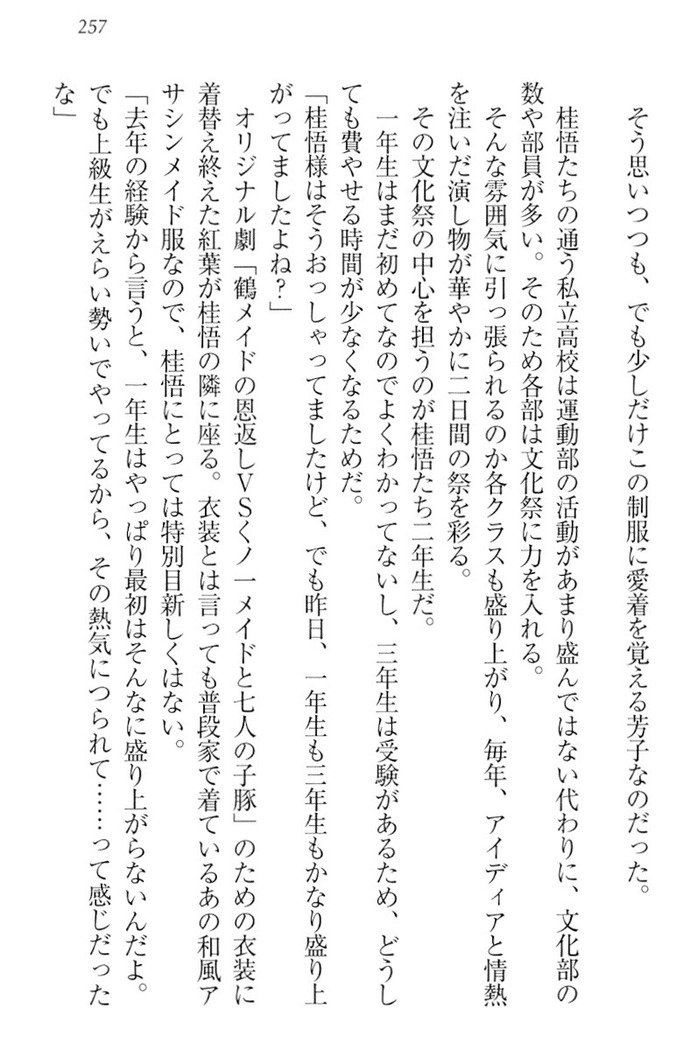 257
そう思いつつも、でも少しだけこの制服に愛着を覚える芳子なのだった。
桂悟たちの通う私立高校は運動部の活動があまり盛んではない代わりに、文化部の
数や部員が多い。そのため各部は文化祭に力を入れる。
そんな雰囲気に引っ張られるのか各クラスも盛り上がり、毎年、アイディアと情熱
を注いだ演し物が華やかに二日間の祭を彩る。
その文化祭の中心を担うのが桂悟たち二年生だ。
一年生はまだ初めてなのでよくわかってないし、三年生は受験があるため、どうし
ても費やせる時間が少なくなるためだ。
「桂悟様はそうおっしゃってましたけど、でも昨日、一年生も三年生もかなり盛り上
がってましたよね?」
オリジナル劇「鶴メイドの恩返しVSくノ一メイドと七人の子豚」のための衣装に
着替え終えた紅葉が桂悟の隣に座る。衣装とは言っても普段家で着ているあの和風ア
サシンメイド服なので、桂悟にとっては特別目新しくはない。
「去年の経験から言うと、一年生はやっぱり最初はそんなに盛り上がらないんだよ。
でも上級生がえらい勢いでやってるから、その熱気につられて……って感じだった
な」